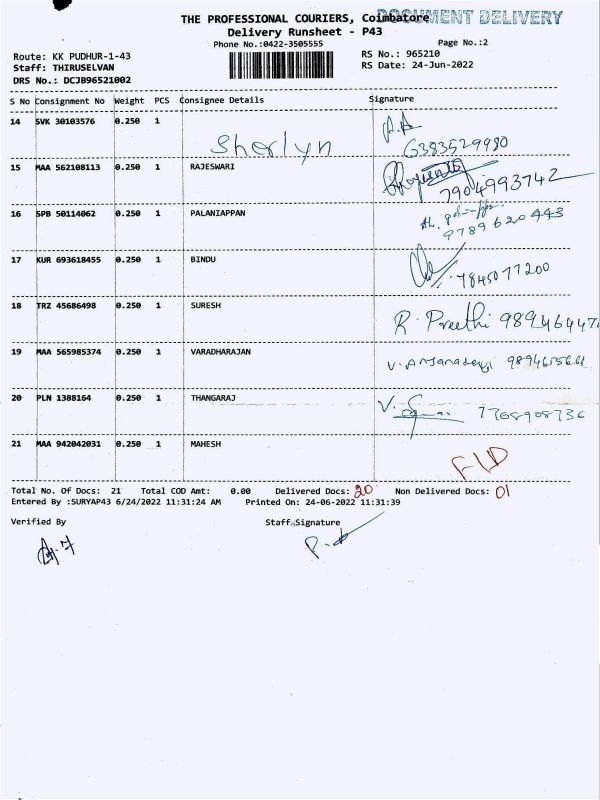 THE PROFESSIONAL COURIERS, Coimbatore DOCUMENT DELIVERY
Delivery Runsheet - P43
Phone No.:0422-3505555 Page No.:2
Route: KK PUDHUR-1-43 RS No.: 965210
Staff: THIRUSELVAN RS Date: 24-Jun-2022
DRS No.: DCJB96521002
S No Consignment No Weight PCS Consignee Details Signature
14 SVK 30103576 0.250 1
Sherlyn 6383529980
15 MAA 562108113 0.250 1 RAJESWARI
7904993742
16 SPB 50114062 0.250 1 PALANIAPPAN
9789620443
17 KUR 693618455 0.250 1 BINDU
7845077200
18 TRZ 45686498 0.250 1 SURESH
R. Preethi 989464447
19 MAA 565985374 0.250 1 VARADHARAJAN
V. Anjanadevi
20 PLN 1388164 0.250 1 THANGARAJ
V. 7708908736
21 MAA 942042031 0.250 1 MAHESH
FID
Total No. Of Docs: 21 Total COD Amt: 0.00 Delivered Docs: 20 Non Delivered Docs: 01
Entered By :SURYAP43 6/24/2022 11:31:24 AM Printed On: 24-06-2022 11:31:39
Verified By Staff Signature